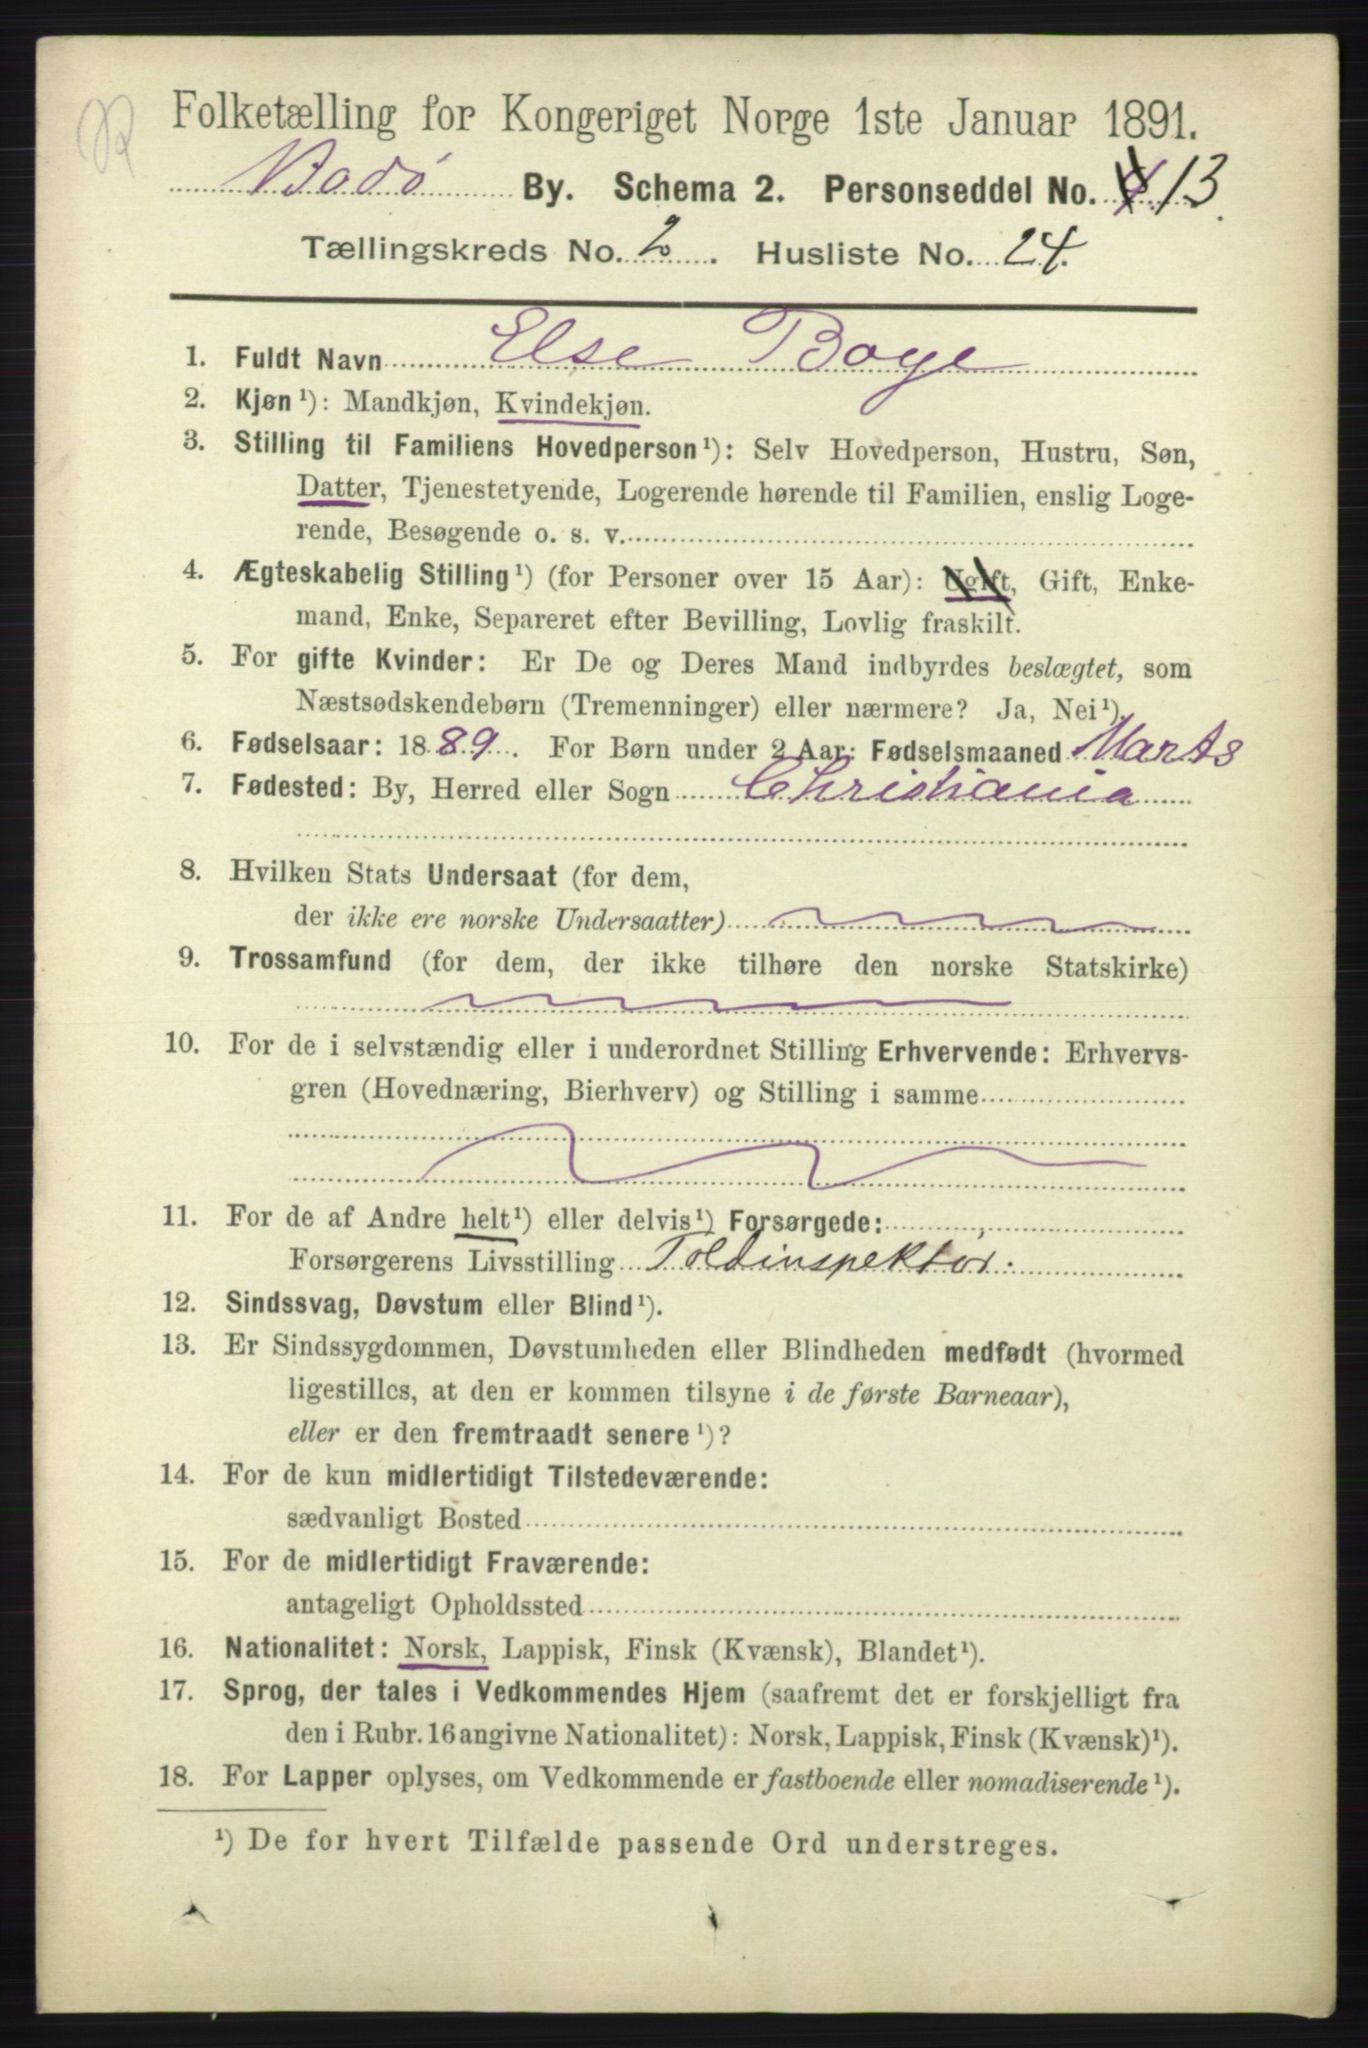 Folketælling for Kongeriget Norge 1ste Januar 1891.
Bodø By. Schema 2. Personseddel No. 13.
Tællingskreds No. 2. Husliste No. 24.
1. Fuldt Navn Else Boye
2. Kjøn ¹): Mandkjøn, Kvindekjøn.
3. Stilling til Familiens Hovedperson ¹): Selv Hovedperson, Hustru, Søn,
Datter, Tjenestetyende, Logerende hørende til Familien, enslig Loge-
rende, Besøgende o. s. v.
4. Ægteskabelig Stilling ¹) (for Personer over 15 Aar): Ugift, Gift, Enke-
mand, Enke, Separeret efter Bevilling, Lovlig fraskilt.
5. For gifte Kvinder: Er De og Deres Mand indbyrdes beslægtet, som
Næstsødskendebørn (Tremenninger) eller nærmere? Ja, Nei ¹).
6. Fødselsaar: 1889. For Børn under 2 Aar: Fødselsmaaned Marts
7. Fødested: By, Herred eller Sogn Christiania
8. Hvilken Stats Undersaat (for dem,
der ikke ere norske Undersaatter)
9. Trossamfund (for dem, der ikke tilhøre den norske Statskirke)
10. For de i selvstændig eller i underordnet Stilling Erhvervende: Erhvervs-
gren (Hovednæring, Bierhverv) og Stilling i samme
11. For de af Andre helt ¹) eller delvis ¹) Forsørgede:
Forsørgerens Livsstilling Toldinspektør.
12. Sindssvag, Døvstum eller Blind ¹).
13. Er Sindssygdommen, Døvstumheden eller Blindheden medfødt (hvormed
ligestilles, at den er kommen tilsyne i de første Barneaar),
eller er den fremtraadt senere ¹)?
14. For de kun midlertidigt Tilstedeværende:
sædvanligt Bosted
15. For de midlertidigt Fraværende:
antageligt Opholdssted
16. Nationalitet: Norsk, Lappisk, Finsk (Kvænsk), Blandet ¹).
17. Sprog, der tales i Vedkommendes Hjem (saafremt det er forskjelligt fra
den i Rubr. 16 angivne Nationalitet): Norsk, Lappisk, Finsk (Kvænsk) ¹).
18. For Lapper oplyses, om Vedkommende er fastboende eller nomadiserende ¹).
¹) De for hvert Tilfælde passende Ord understreges.